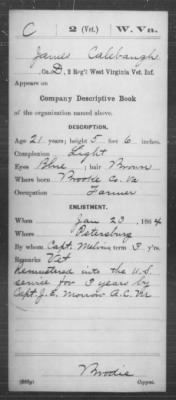 C 2 (Vet.) W. Va.
James Calebaugh
Co. D, 2 Reg't West Virginia Vet. Inf.
Appears on
Company Descriptive Book
of the organization named above.
DESCRIPTION.
Age 21 years; height 5 feet 6 inches.
Complexion Light
Eyes Blue ; hair Brown
Where born Brooke Co. Va
Occupation Farmer
ENLISTMENT.
When Jan 23 , 1864
Where Petersburg
By whom Capt. Melvin term 3 y'rs.
Remarks Vet
Remustered into the U.S.
service for 3 years by
Capt. J. E. Morrow A.C.M
Brodie
Copyist.